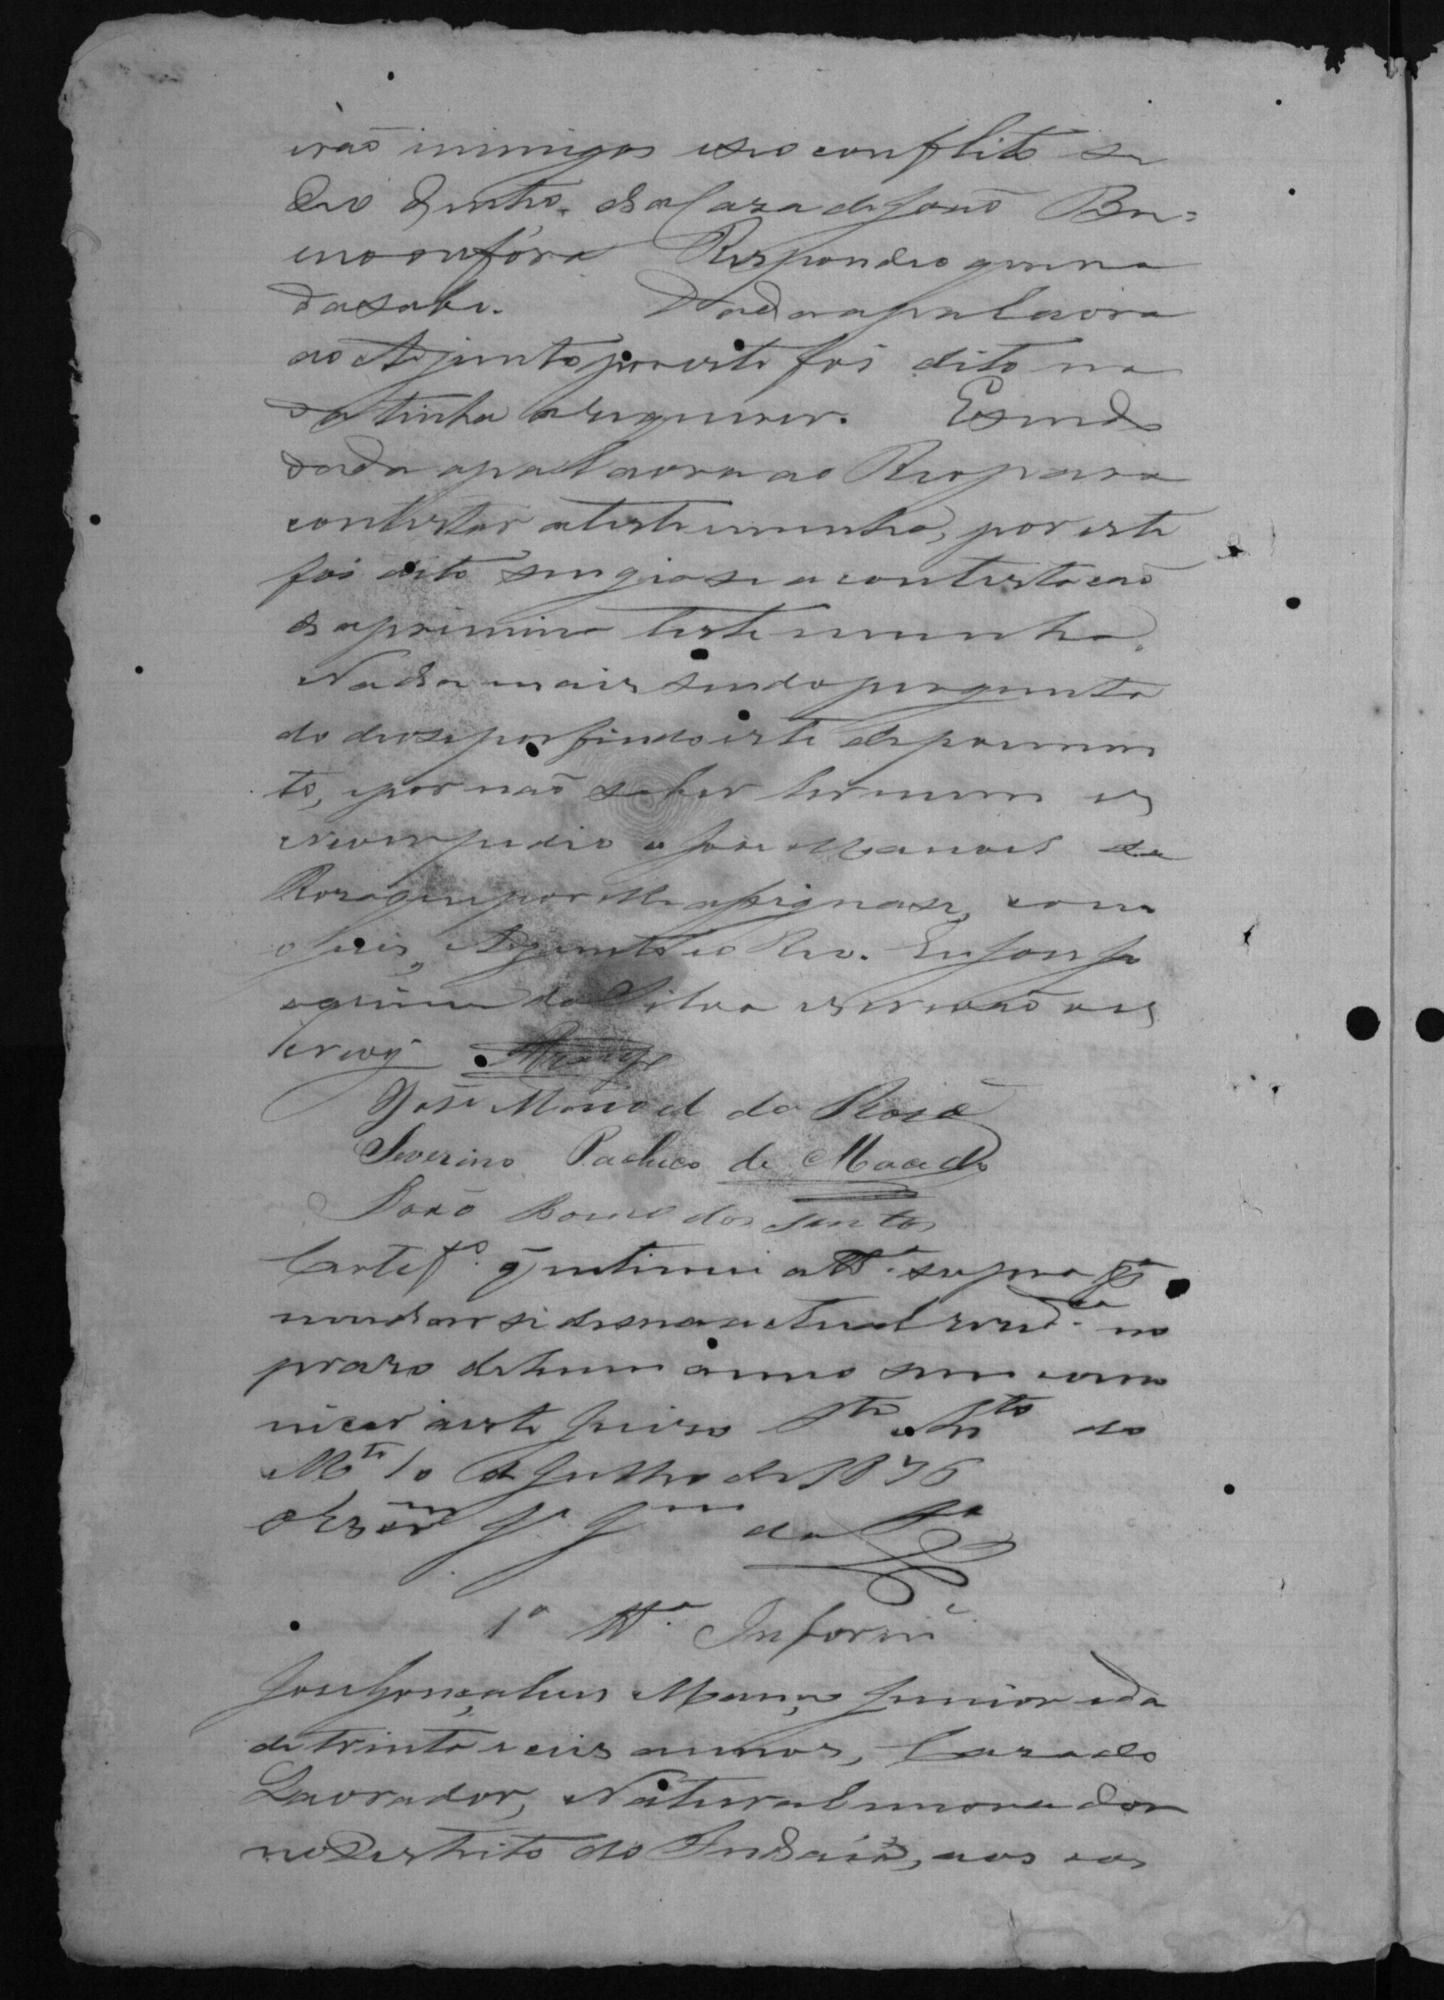 erão inimigos eseoconflito se
deo dentro da Caza de João Bru=
no ou fóra Respondeo que na
da sabe. Dada apalavra
ao Ajunto por este foi dito na
da tinha arequerer. Esendo
dada apalavra ao Reo para
contestar atestemunha, por este
foi dito seguiase acontestação
da primeira testemunha.
Nada mais sendo pergunta
do deose por findo este depoimen
to, epor não saber ler nem es
crever pedio a José Manoel da
Rosa que por elle assignase, com
o juis, Ajunto eo Reo. Eu José Jo
aquim da Silva escrivão oes
crevy Araujo
José Manoel da Rosa
Severino Pacheco de Macedo
João Bruno dos Santos
Certefº q̃ intimei aTtª supra pª
mudarse desua actual resid.ca no
prazo dehum anno sem comu
nicar aeste Juizo Sto Anto do
Mte 10 de Julho de 1876
oEscram Je Jqm da Sª
1ª Ttª Inform
José Gonçalves Março Junior eda
de trinta eseis annos, Cazado
Lavrador, Natural emorador
no Destrito do Indaiá, aos cos